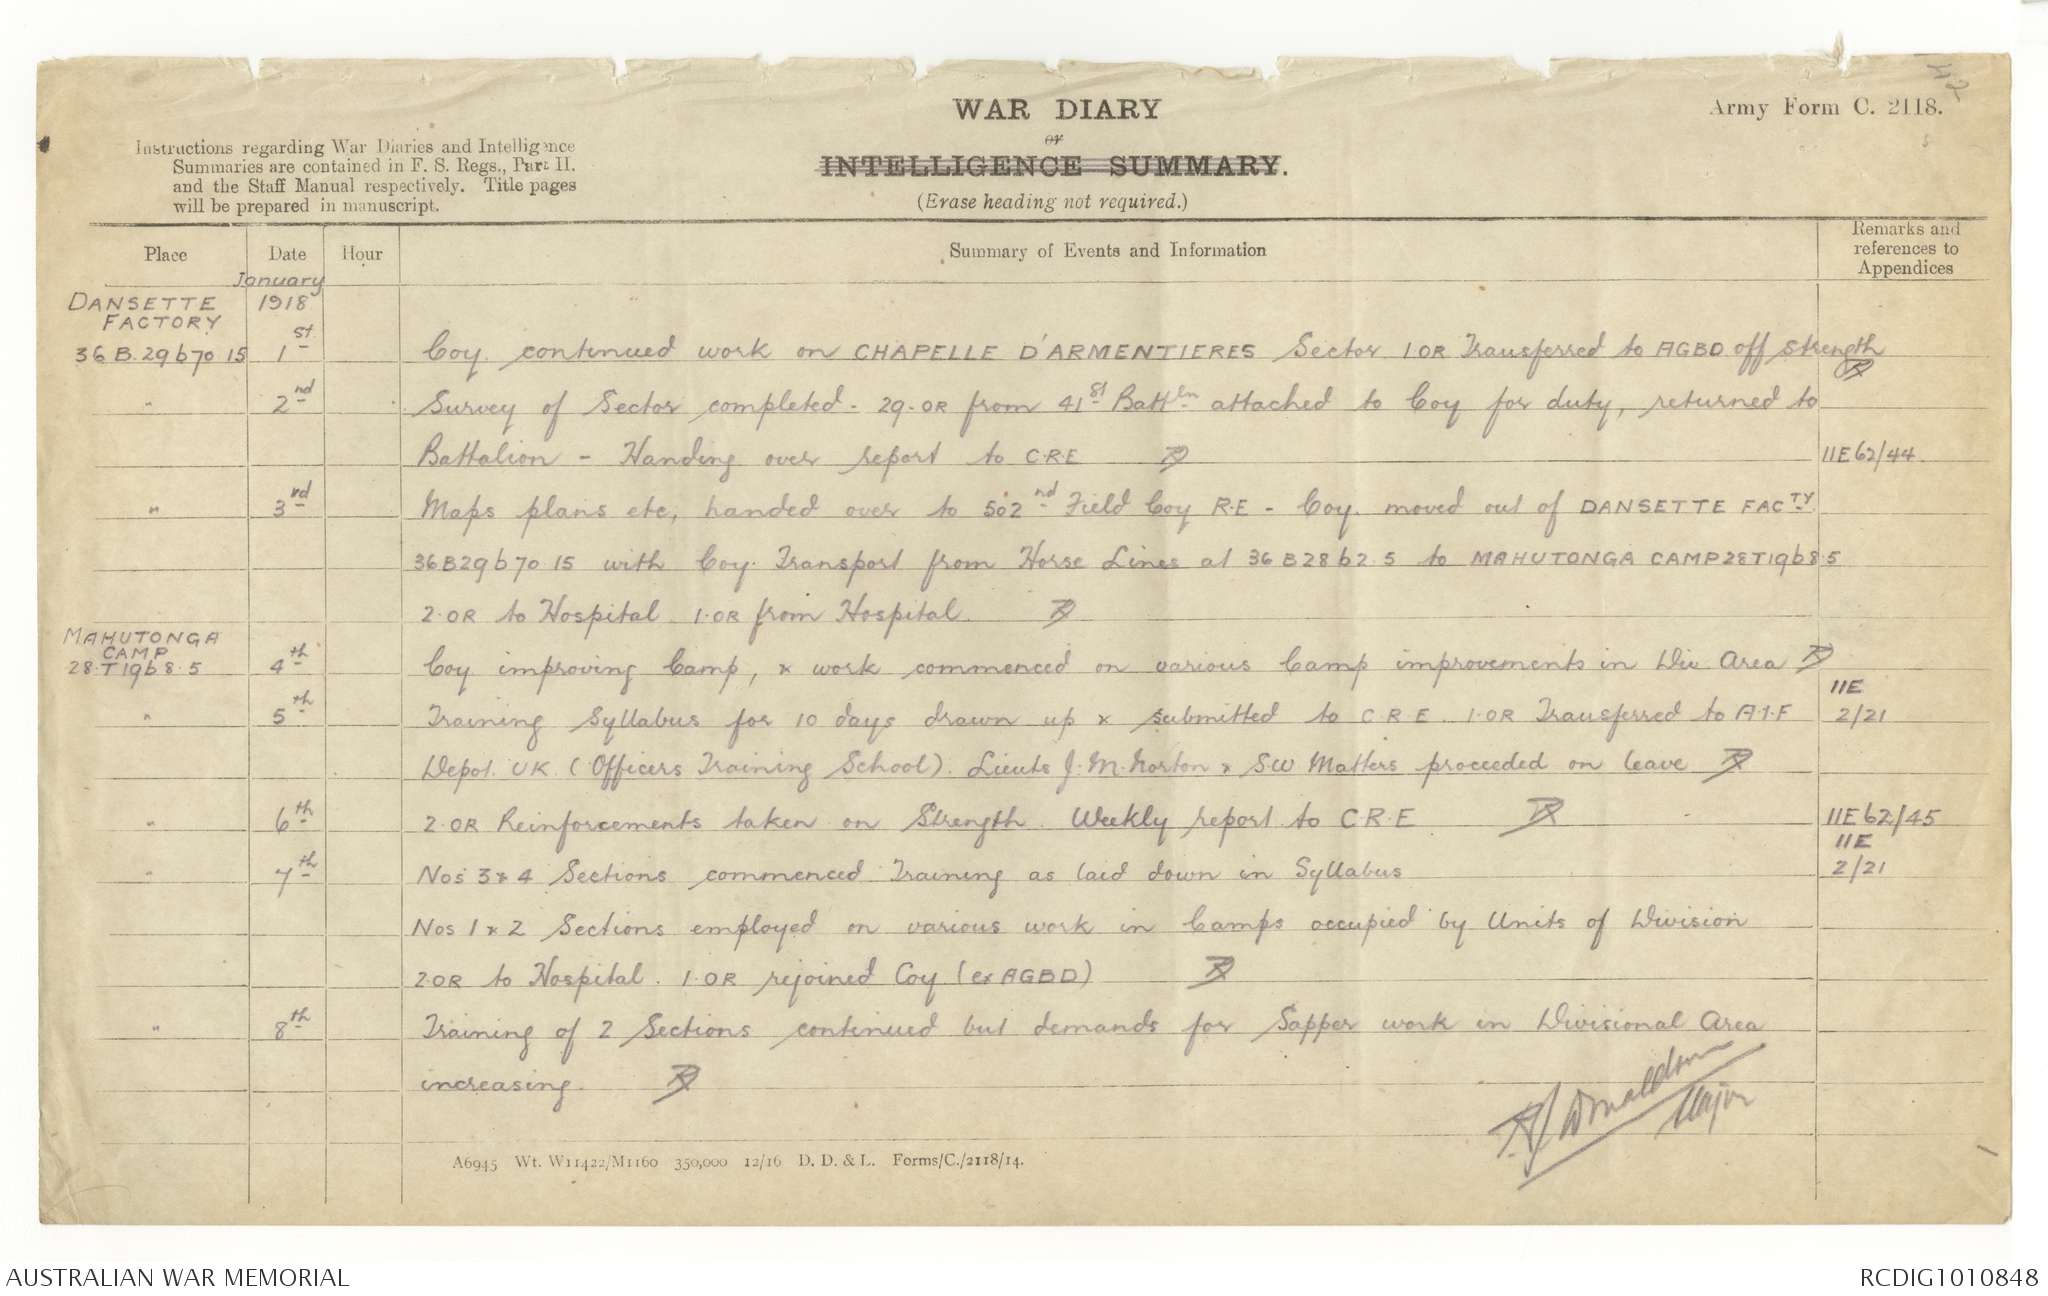 42
Army Form C. 2118.
WAR DIARY
or
INTELLIGENCE SUMMARY.
(Erase heading not required.)
Instructions regarding War Diaries and Intelligence
Summaries are contained in F. S. Regs., Part II.
and the Staff Manual respectively. Title pages
will be prepared in manuscript.
Place Date Hour Summary of Events and Information Remarks and references to Appendices
January
DANSETTE 1918
FACTORY
36 B.29 b 70 15 1st Coy. continued work on CHAPELLE D'ARMENTIERES Sector 1 OR Transferred to AGBD off strength
" 2nd Survey of Sector completed - 29-OR from 41st Battln attached to Coy for duty, returned to
Battalion - Handing over report to C.R.E IIE62/44.
" 3rd Maps plans etc, handed over to 502nd Field Coy R.E - Coy. moved out of DANSETTE FACTY
36B29b70 15 with Coy. Transport from Horse Lines at 36 B28b2.5 to MAHUTONGA CAMP 28T19b8.5
2.OR to Hospital 1.OR from Hospital.
MAHUTONGA
CAMP
28.T19b8.5 4th Coy improving Camp, & work commenced on various Camp improvements in Div Area
IIE
" 5th Training Syllabus for 10 days drawn up & submitted to C.R.E. 1.OR Transferred to A.I.F 2/21
Depot. UK. (Officers Training School). Lieuts J.M.Norton & SW Matters proceeded on leave
" 6th 2.OR Reinforcements taken on Strength. Weekly report to C.R.E IIE62/45
IIE
" 7th Nos 3 & 4 Sections commenced Training as laid down in Syllabus 2/21
Nos 1 & 2 Sections employed on various work in Camps occupied by Units of Division
2.OR to Hospital. 1.OR rejoined Coy (ex AGBD)
" 8th Training of 2 Sections continued but demands for Sapper work in Divisional Area
increasing.
Donaldson
Major
A6945 Wt. W11422/M1160 350,000 12/16 D. D. & L. Forms/C./2118/14.
AUSTRALIAN WAR MEMORIAL
RCDIG1010848